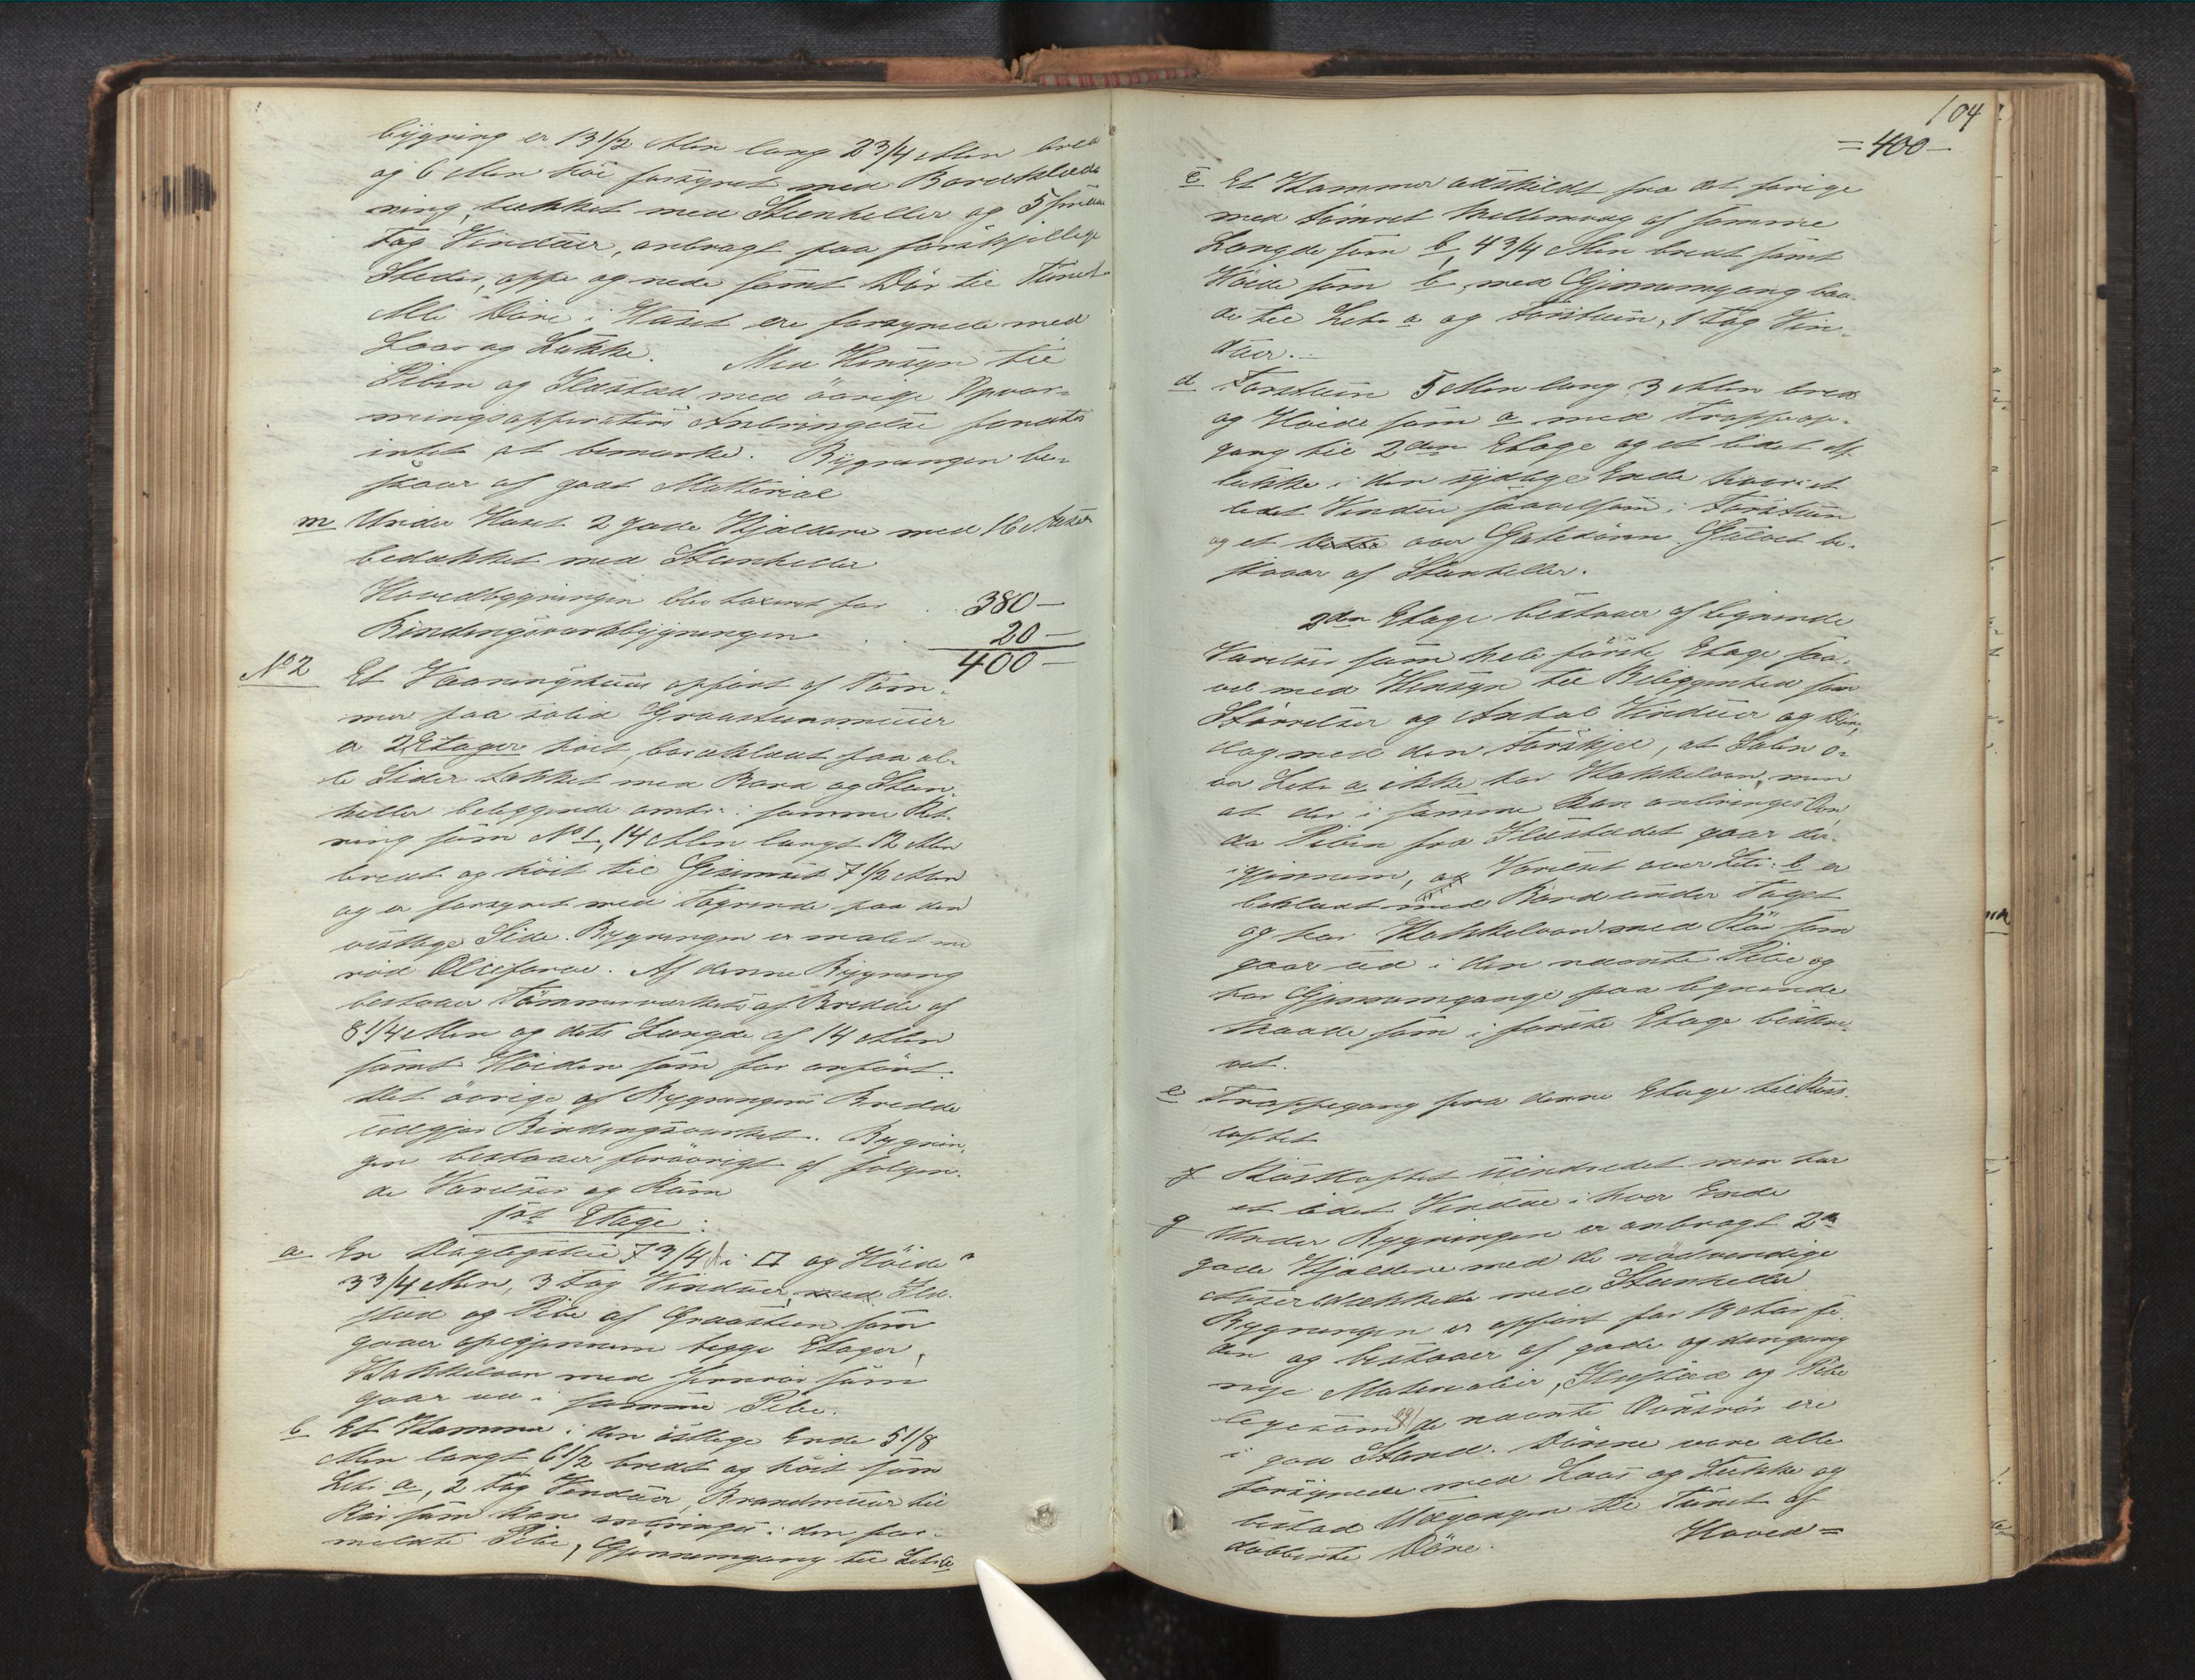 bygning er 13 1/2 Alen lang 2 3/4 Alen bred
og 6 Alen höi forsynet med Bordklæd-
ning, tækket med Steenheller og 5 smaa
Fag Vinduer, anbragt paa forskjellige
Steder, oppe og nede samt Dör til Tunet
Alle Döre i Huset ere forsynede med
Laas og Lukke. Med Hensyn til
Piben og Ildsted med övrige Opvar-
mningsapparaters Anbringelse fandtes
intet at bemærke. Bygningen be-
staaer af godt Matterial
m Under Huset 2 gode Kjeldere med 16 Aaser
bedækket med Steenheller
Hovedbygningen blev taxeret for . 380 -
Bindingsværkbygningen . . 20 -
400 -
No 2 Et Vaaningshuus opfört af Töm-
mer paa solid Graasteensmuur
er 2 Etager höit, bordklædt paa al-
le Sider tækket med Bord og Steen-
heller beliggende omtr: i samme Ret-
ning som No 1, 14 Alen langt 12 Alen
bredt og höit til Gesimset 7 1/2 Alen
og er forsynet med Tagrende paa den
vestlige Side. Bygningen er malet med
röd Oliefarve. Af denne Bygning
bestaaer Tömmerværkets af Bredde af
8 1/4 Alen og dets Længde af 14 Alen
samt Höiden som för anfört.
Det övrige af Bygningens Bredde
udgjör Bindingsværket. Bygnin-
gen bestaaer forövrigt af fölgen-
de Værelser og Rum
1ste Etage:
a En Dagligstue 7 3/4 A i □ og Höide
3 3/4 Alen, 3 Fag Vinduer, med Ild-
sted og Pibe af Graasteen som
gaaer opigjennem begge Etager,
Kakkelovn med Jernrör som
gaar ud i samme Pibe.
b Et Kammer i den östlige Ende 5 1/8
Alen langt, 6 1/2 bredt og höit som
Litr a, 2 Fag Vinduer, Brandmuur til
Rör som kan anbringes i den for-
meldte Pibe, Gjennemgang til Litr a
104
= 400 -
c Et Kammer adskildt fra det forige
med tömret Mellemvæg af samme
Længde som b, 4 3/4 Alen bredt samt
Höide som b, med Gjennemgang baa-
de til Litr a og Forstuen, 1 Fag Vin-
duer.
d Forstuen 5 Alen lang, 3 Alen bred
og Höide som a med Trappeop-
gang til 2den Etage og et lidet Af-
lukke i den sydlige Ende hvori et
lidet Vindue saavelsom i Forstuen
og et dette over Gatedören Gulvet be-
staaer af Steenheller.
2den Etage bestaaer af lignende
Værelser som hele förste Etage saa-
vel med Hensyn til Beliggenhed som
Störrelse og Antal Vinduer og Döre,
dog med den Forskjel, at Salen o-
ver Litr a ikke har Kakkelovn, men
at der i samme kan anbringes Ovn
da Piben fra Ildstedet gaar der-
igjennem, og Værelset over Litr: b er
beklædt med Bord under Taget
og har Kakkelovn med Rör som
gaar ud i den nævnte Pibe og
har Gjennemgange paa lignende
Maade som i förste Etage beskre-
vet.
e Trappegang fra denne Etage til Röst-
loftet
f Röstloftet uindredet men har
et lidet Vindue i hver Ende
g Under Bygningen er anbragt 2de
gode Kjeldere med de nödvendige
Aaser bedækkede med Steenheller
Bygningen er opfört for 18 Aar si-
den og bestaaer af gode og dengang
nye Materialier, Ildsted og Pibe
ligesom og de nævnte Ovnsrör ere
i god Stand. Dörene vare alle
forsynede med Laas og Lukke og
bestod Udgangen til Tunet af
dobbelte Döre. Hoved=